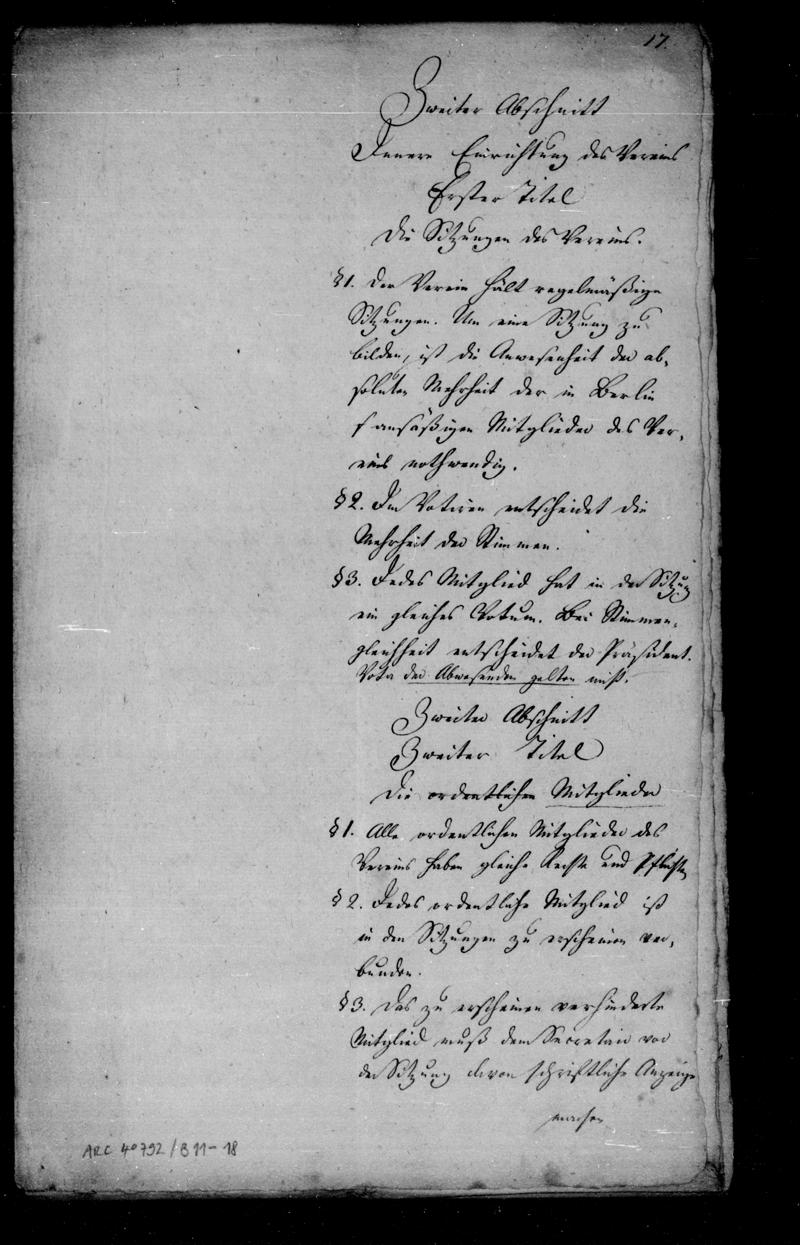 17.
Zweiter Abschnitt
Innere Einrichtung des Vereins
Erster Titel
Die Sitzungen des Vereins.
§1. Der Verein hält regelmäßige
Sitzungen. Um eine Sitzung zu
bilden, ist die Anwesenheit der ab-
soluten Mehrheit der in Berlin
ansäßigen Mitglieder des Ver-
eins nothwendig.
§2. Im Votiren entscheidet die
Mehrheit der Stimmen.
§3. Jedes Mitglied hat in der Sitzung
ein gleiches Votum. Bei Stimmen-
gleichheit entscheidet der Präsident.
Vota der Abwesenden gelten nicht.
Zweiter Abschnitt
Zweiter Titel
Die ordentlichen Mitglieder
§1. Alle ordentlichen Mitglieder des
Vereins haben gleiche Rechte und Pflichten
§2. Jedes ordentliche Mitglied ist
in den Sitzungen zu erscheinen ver-
bunden.
§3. Das zu erscheinen verhinderte
Mitglied muß dem Secretair vor
der Sitzung davon schriftliche Anzeige
machen
ARC 4o792/B11-18